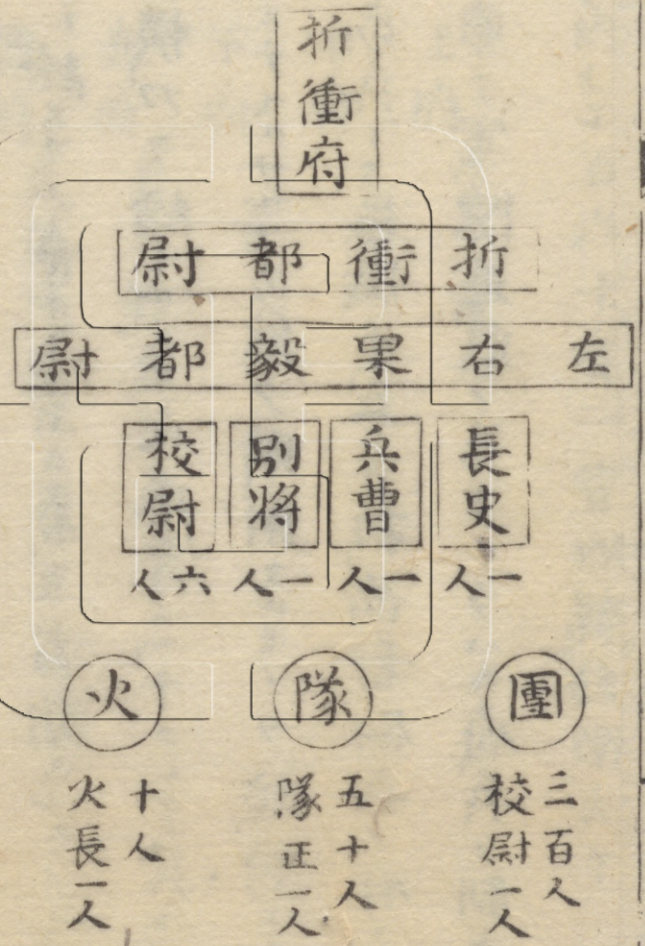 折衝府
折衝都尉
左右果毅都尉
長史
一人
兵曹
一人
別将
一人
校尉
六人
團
三百人
校尉一人
隊
五十人
隊正一人
火
十人
火長一人